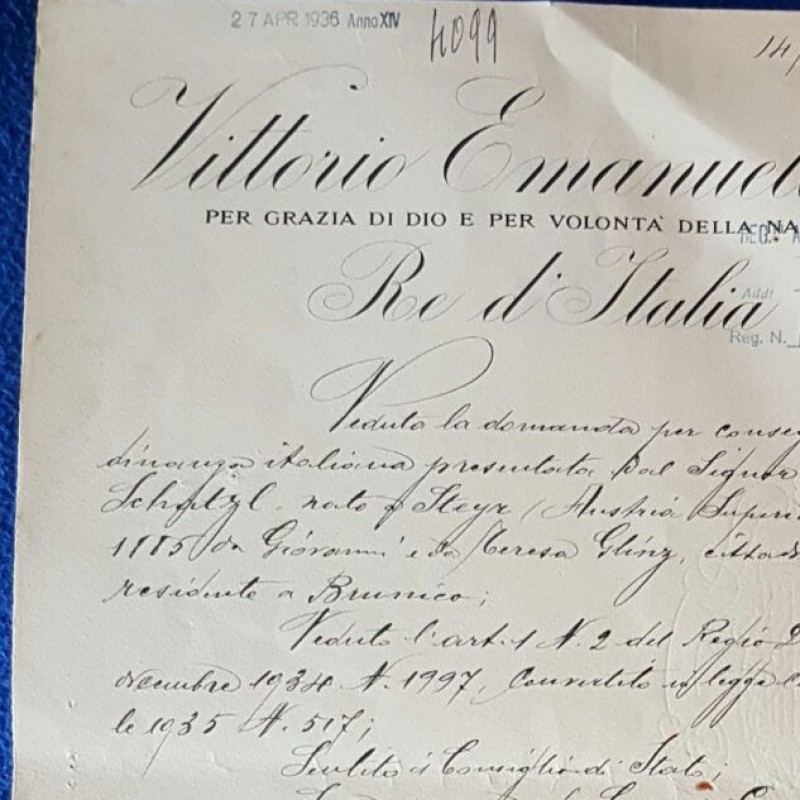 27 APR 1936 Anno XIV
4099
14/
Vittorio Emanuel
PER GRAZIA DI DIO E PER VOLONTA' DELLA NA
REG.
Re d'Italia
Addì
Reg. N.
Veduta la domanda per conseg
dinanza italiana presentata dal Signor
Schatzl nato a Steyr (Austria Superi
1885 da Giovanni e da Teresa Glinz, cittad
residente a Brunico;
Veduto l'art. 1 N. 2 del Regio D
dicembre 1934 N. 1997, convertito in legge
le 1935 N. 517;
Sentito il Consiglio di Stato;